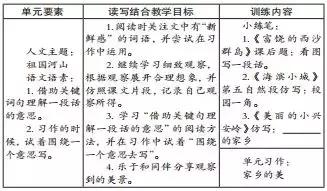 单元要素
读写结合教学目标
训练内容
人文主题：
祖国河山
语文要素：
1.借助关键
词句理解一段话
的意思。
2.习作的时
候，试着围绕一
个意思写。
1.阅读时关注文中有“新
鲜感”的词语，并尝试在习
作中运用。
2.继续学习细致观察，
根据观察展开合理想象，并
仿照课文片段，记录自己观
察所得。
3.学习“借助关键句理
解一段话的意思”的阅读方
法，并在习作中试着“围绕
一个意思去写”。
4.乐于和同伴分享观察
到的美景。
小练笔：
1.《富饶的西沙
群岛》课后题：看图
写一段话。
2.《海滨小城》
第五自然段仿写：校
园一角。
3.《美丽的小兴
安岭》仿写：
的家乡
单元习作：
家乡的美